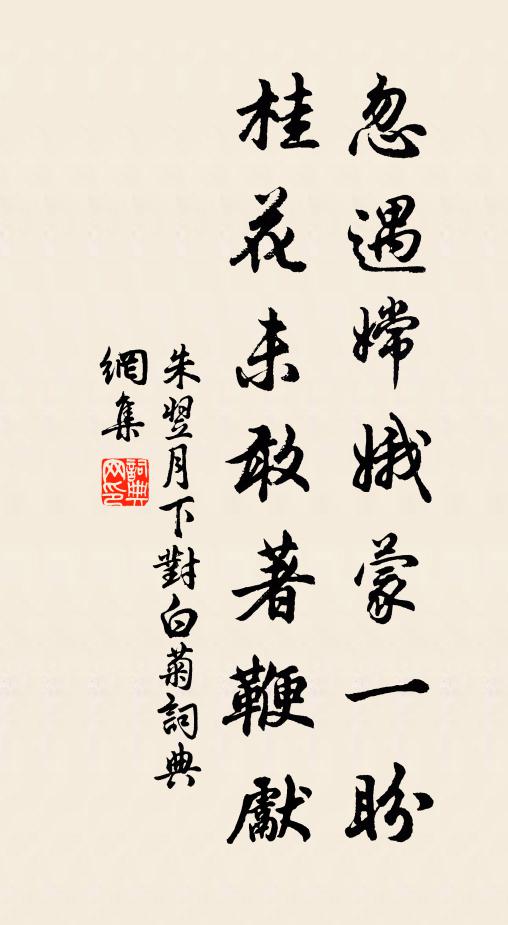 忽遇嫦娥蒙一盼
桂花未敢著鞭獻
朱翌月下對白菊詞典
網集
詞典网印